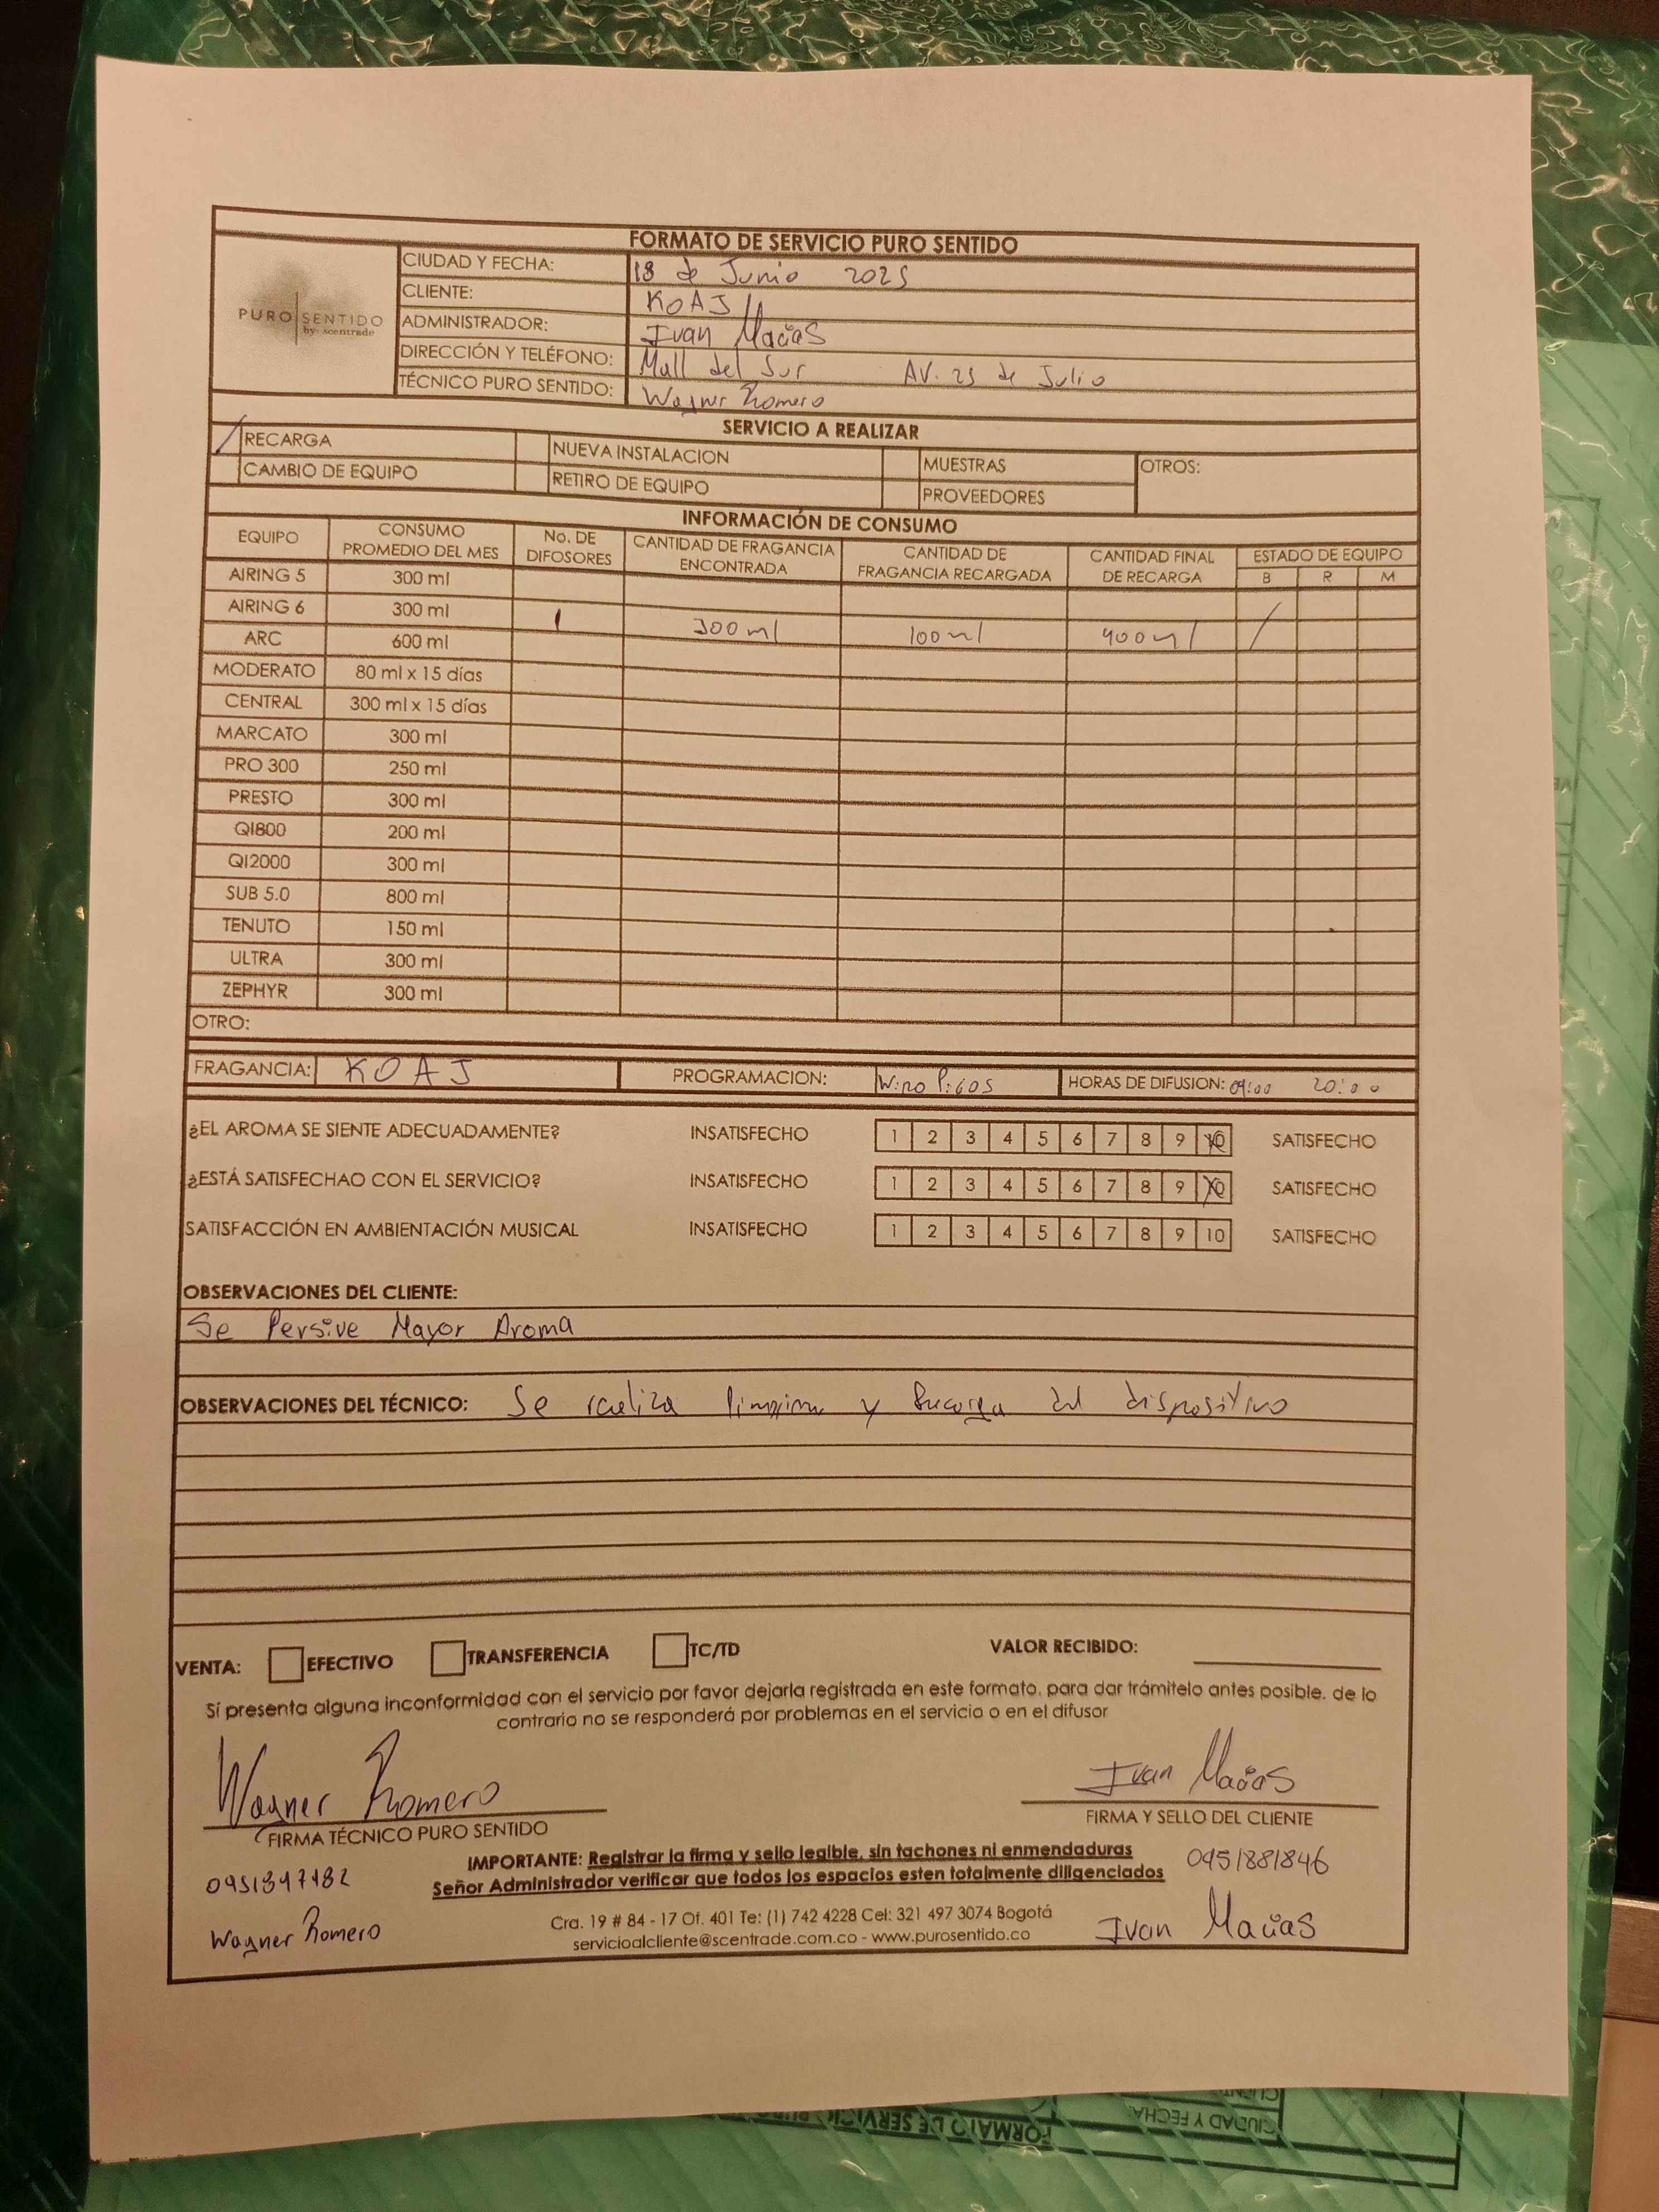 FORMATO DE SERVICIO PURO SENTIDO
PURO SENTIDO
by: scentrade
CIUDAD Y FECHA: 18 de Junio 2025
CLIENTE: KOAJ
ADMINISTRADOR: Ivan Macias
DIRECCIÓN Y TELÉFONO: Mall del Sur AV. 25 de Julio
TÉCNICO PURO SENTIDO: Wagner Romero
SERVICIO A REALIZAR
RECARGA NUEVA INSTALACION MUESTRAS OTROS:
CAMBIO DE EQUIPO RETIRO DE EQUIPO PROVEEDORES
INFORMACIÓN DE CONSUMO
EQUIPO CONSUMO PROMEDIO DEL MES No. DE DIFOSORES CANTIDAD DE FRAGANCIA ENCONTRADA CANTIDAD DE FRAGANCIA RECARGADA CANTIDAD FINAL DE RECARGA ESTADO DE EQUIPO
B R M
AIRING 5 300 ml
AIRING 6 300 ml
ARC 600 ml 1 300 ml 100 ml 400 ml /
MODERATO 80 ml x 15 días
CENTRAL 300 ml x 15 días
MARCATO 300 ml
PRO 300 250 ml
PRESTO 300 ml
QI800 200 ml
QI2000 300 ml
SUB 5.0 800 ml
TENUTO 150 ml
ULTRA 300 ml
ZEPHYR 300 ml
OTRO:
FRAGANCIA: KOAJ PROGRAMACION: W:120 P:60S HORAS DE DIFUSION: 09:00 20:00
¿EL AROMA SE SIENTE ADECUADAMENTE? INSATISFECHO 1 2 3 4 5 6 7 8 9 10 SATISFECHO
¿ESTÁ SATISFECHAO CON EL SERVICIO? INSATISFECHO 1 2 3 4 5 6 7 8 9 10 SATISFECHO
SATISFACCIÓN EN AMBIENTACIÓN MUSICAL INSATISFECHO 1 2 3 4 5 6 7 8 9 10 SATISFECHO
OBSERVACIONES DEL CLIENTE:
Se Persive Mayor Aroma
OBSERVACIONES DEL TÉCNICO: Se realiza y Recarga del dispositivo
VENTA: EFECTIVO TRANSFERENCIA TC/TD VALOR RECIBIDO:
Sí presenta alguna inconformidad con el servicio por favor dejarla registrada en este formato, para dar trámitelo antes posible, de lo
contrario no se responderá por problemas en el servicio o en el difusor
Wagner Romero Ivan Macias
FIRMA TÉCNICO PURO SENTIDO FIRMA Y SELLO DEL CLIENTE
IMPORTANTE: Registrar la firma y sello legible, sin tachones ni enmendaduras
Señor Administrador verificar que todos los espacios esten totalmente diligenciados
0951881846
Wagner Romero Ivan Macias
Cra. 19 # 84 - 17 Of. 401 Te: (1) 742 4228 Cel: 321 497 3074 Bogotá
servicioalcliente@scentrade.com.co - www.purosentido.co
CIUDAD Y FECHA:
FORMATO DE SERVICIO